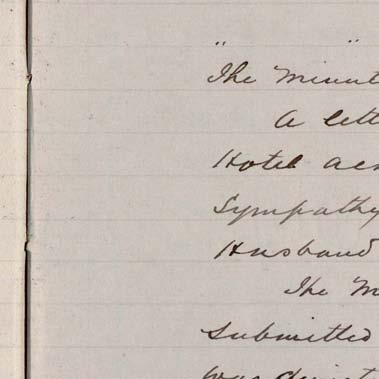 " "
The Minut
A lett
Hotel ack
Sympathy
Husband
The M
Submitted